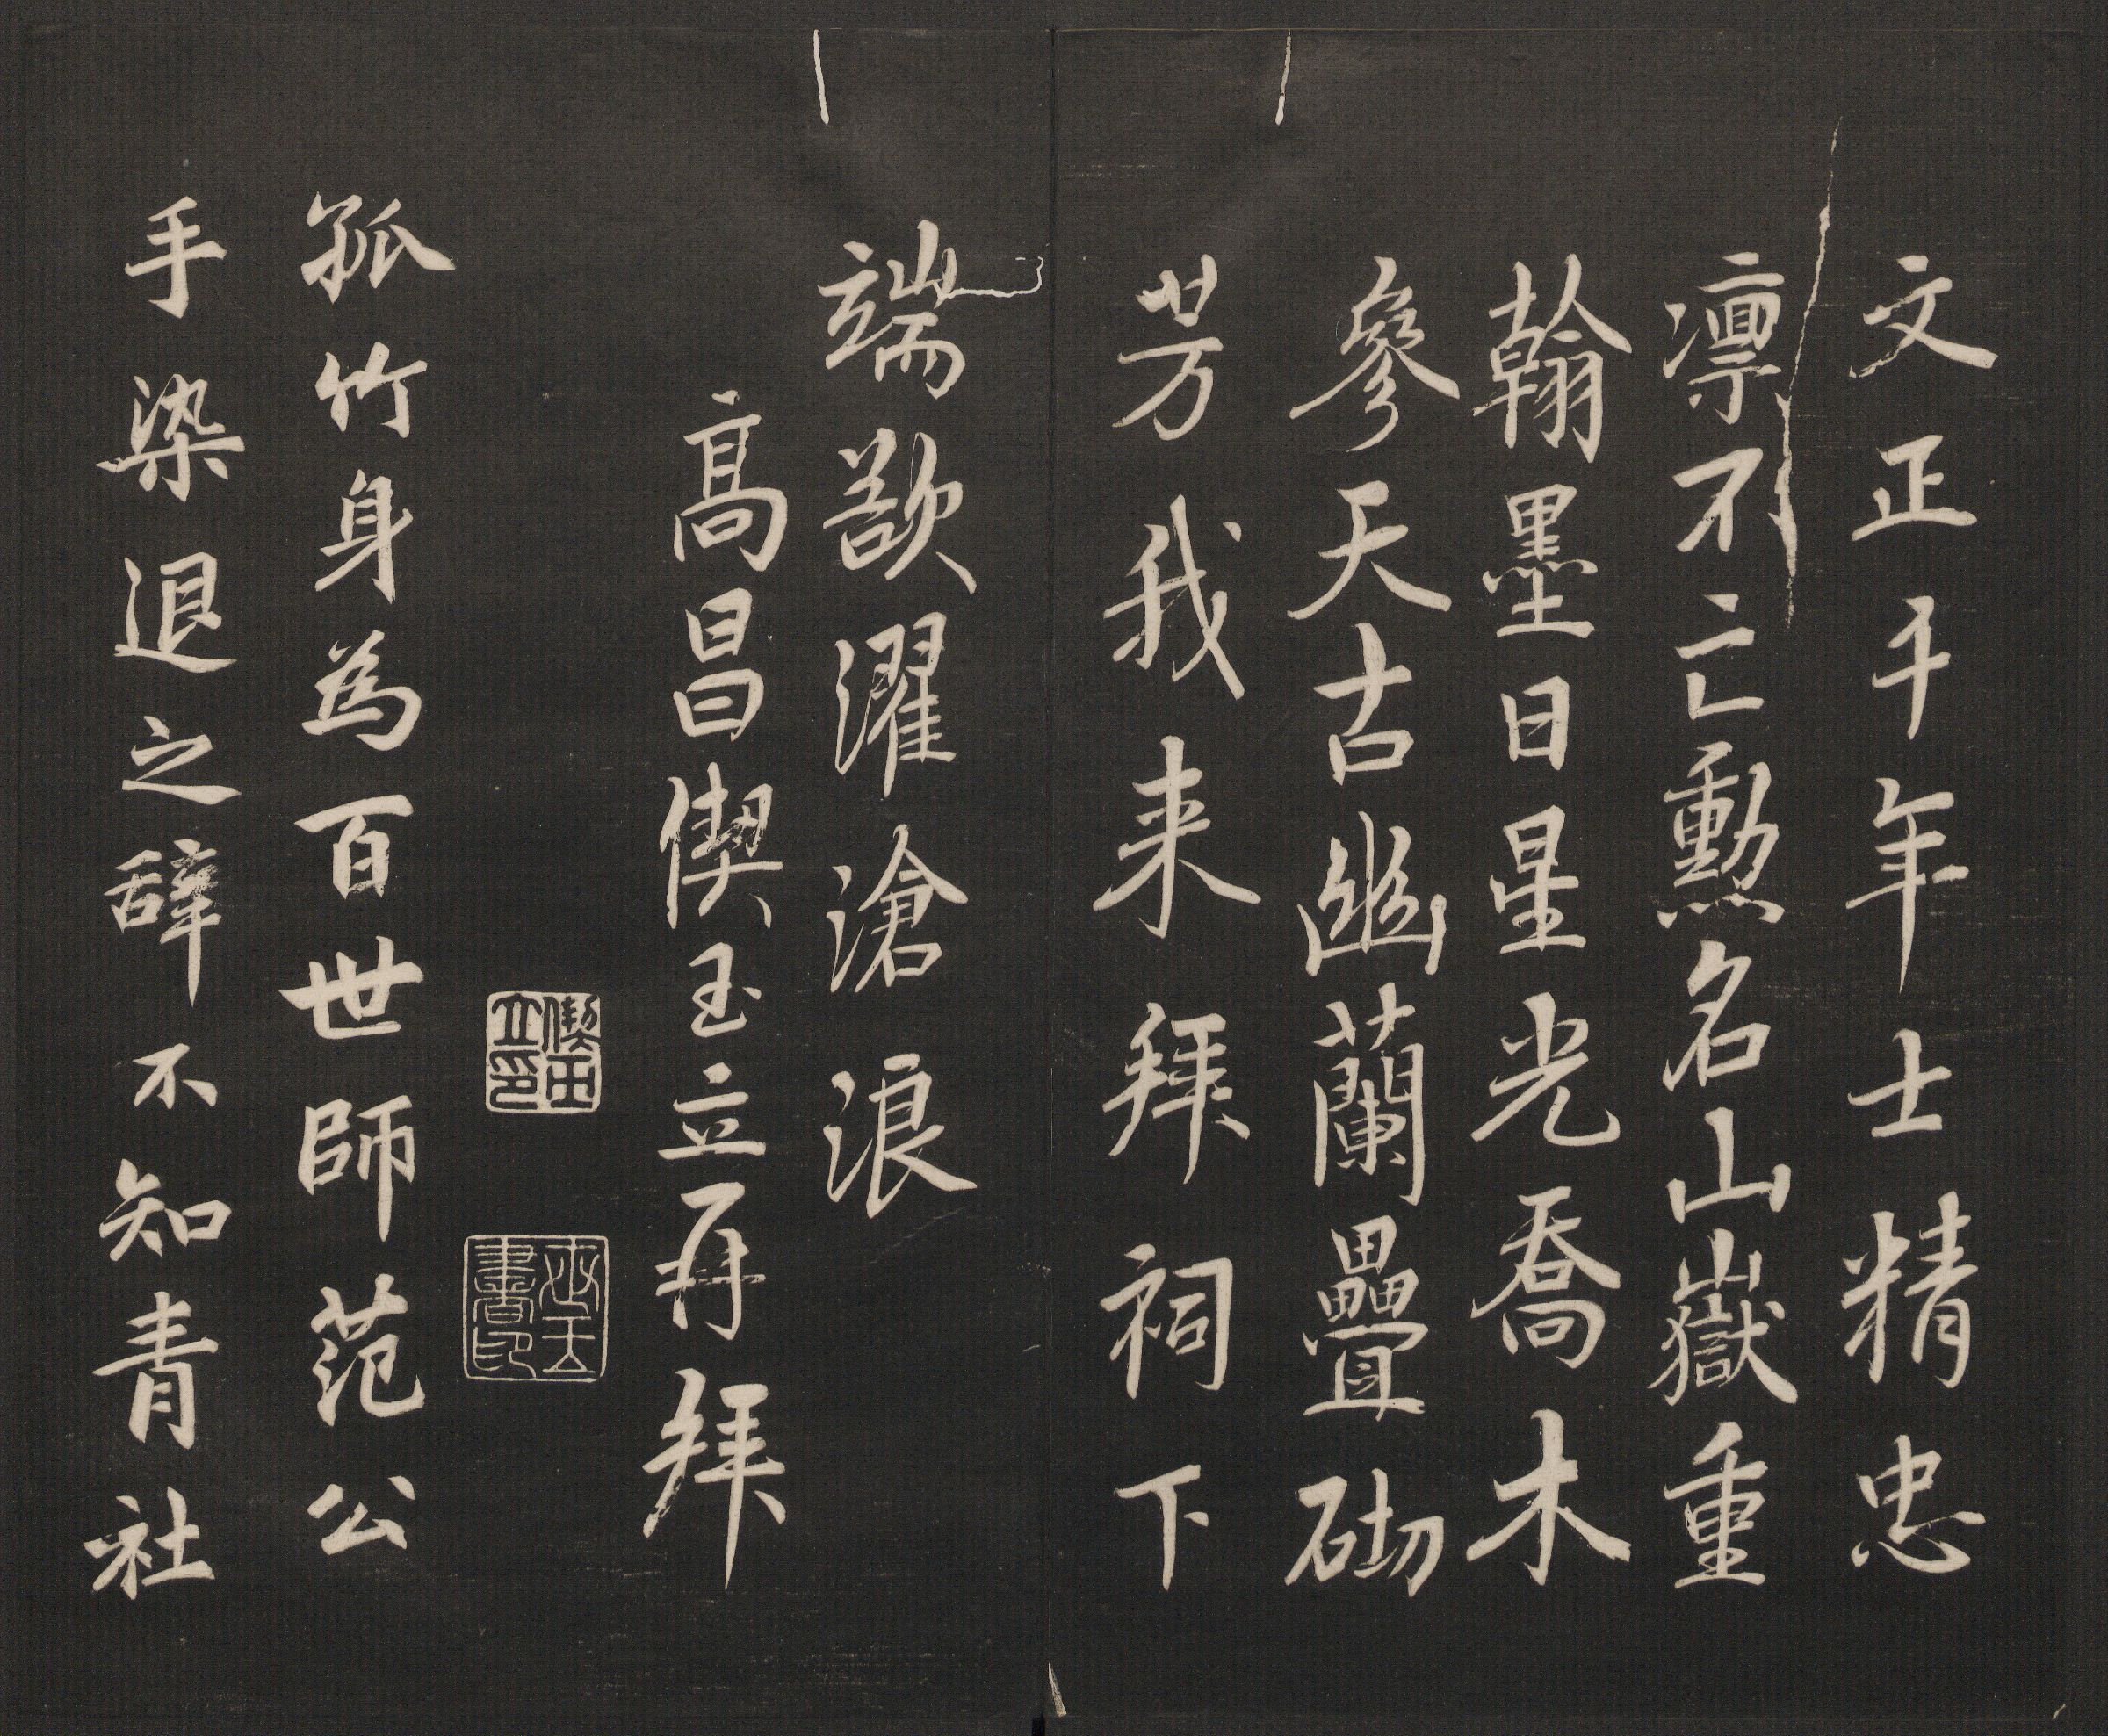 文正千年士精忠
凛不亡勲名山嶽重
翰墨日星光喬木
參天古幽蘭疊砌
芳我来拜祠下
端欲濯滄浪
高昌偰玉立再拜
偰玉立印
世玉書印
孤竹身為百世師范公
手染退之辭不知青社